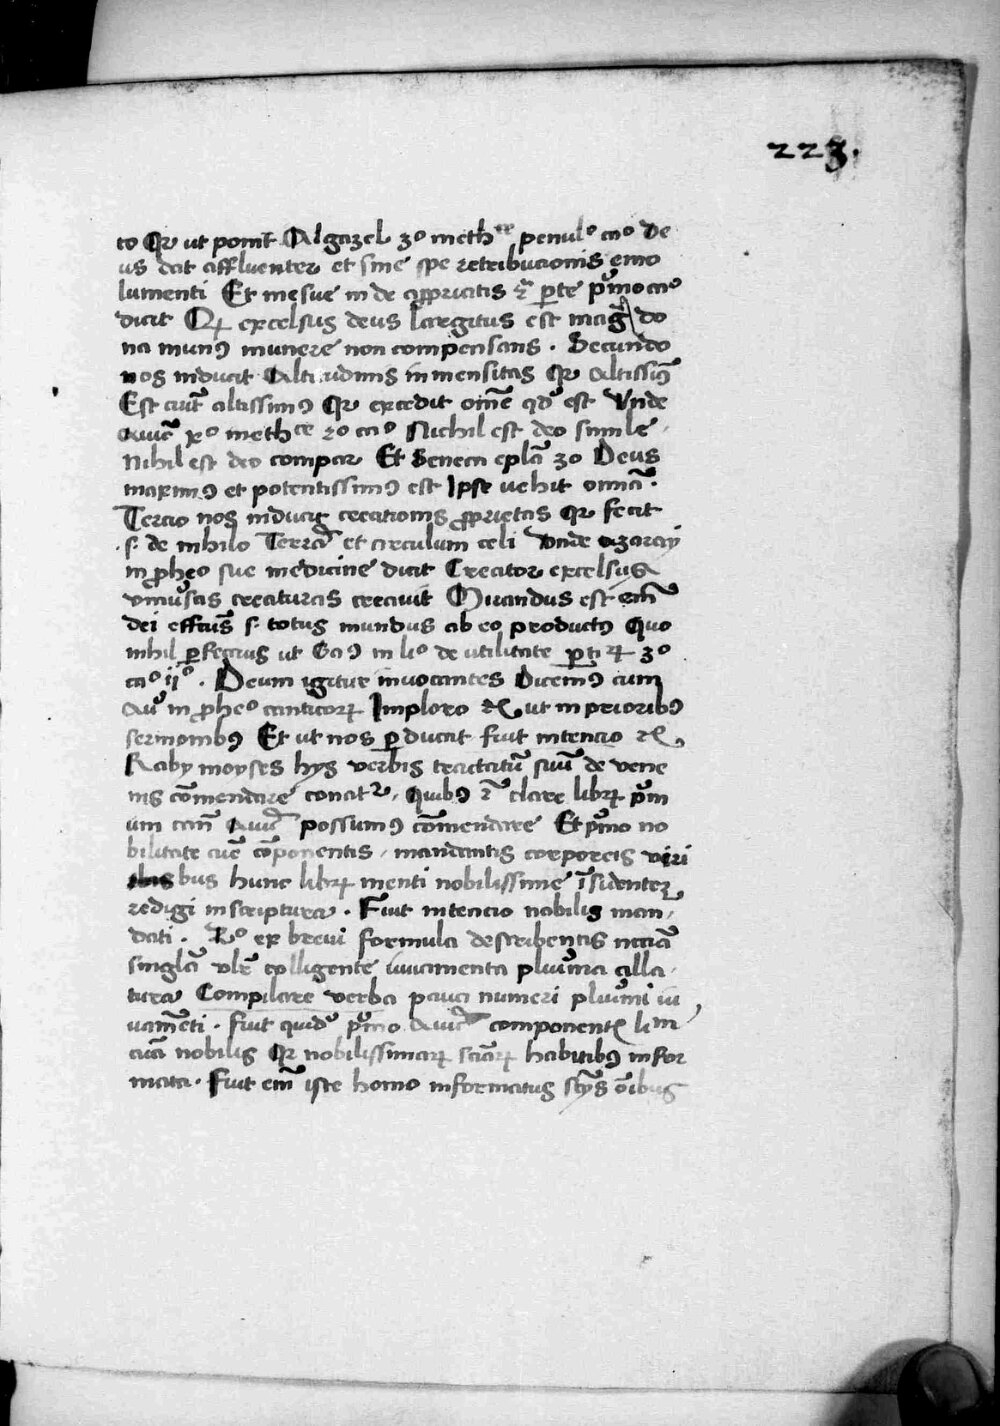 223.
to Qr ut ponit Algazel 3º methce penulº caº de
us dat affluenter et sine spe retribucionis emo
lumenti Et mesue in de parte pºmo caº
dicit Qr excelsus deus largitus est do
na munꝰ munere non compensans . Secundo
nos inducit Altitudinis inmensitas Qr Altissimꝰ
Est aut̄ altissimꝰ Qr excedit om̄e qd est Vnde
Auic̄ methce 2º caº Nichil est deo simile .
Nihil est deo compar Et Seneca ep̄la 30 Deus
maximꝰ et potentissimꝰ est Ipse vehit omīa .
Tercio nos inducit creationis ꝓprietas Qr fecit
.s. de nihilo Terrā et circulum celi Vnde azaray
in ꝓheº sue medicine dicit Creator excelsus
creaturas creauit Mirandus est em̄
dei effctūs .s. totus mundus ab eo productꝰ Quo
nihil ꝑfeccius ut Gaꝰ in liº de utilitate ꝑti 3º
caº ijº . Deum igitur inuocantes Dicemꝰ cum
Au in ꝓheº canticoꝝ Imploro ut in prioribꝰ
sermonibꝰ Et ut nos ꝑducat fuit intencio
Raby moyses hijs verbis tractatū suū de vene
nis cōmendare conatr . Quibꝰ clare librꝫ prim
um can̄ Auic̄ possumꝰ cōmendare Et pºmo no
bilitate componentis . mandantis corporeis viri
bus hunc librꝫ menti nobilissime īsidenteꝫ
redigi in scriptura . Fuit intencio nobilis man
dati . Rº ex breui formula describentis
singlā vlr̄ colligente iuuamenta plurima alla
tura Compilare verba pauca numeri plurimi iu
uam̄eti . Fuit quidº pºmo Auic̄ componentꝭ
nobilis Qr nobilissimaꝝ sciaꝝ habitibꝰ infor
mata . Fuit em̄ iste homo informatus oībus